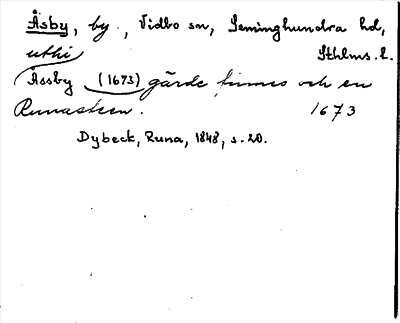 Åsby, by., Vidbo sn, Seminghundra hd,
uthi Sthlms. l.
Åssby (1673) gärde finnes och en
Runasteen. 1673
Dybeck, Runa, 1848, s. 20.